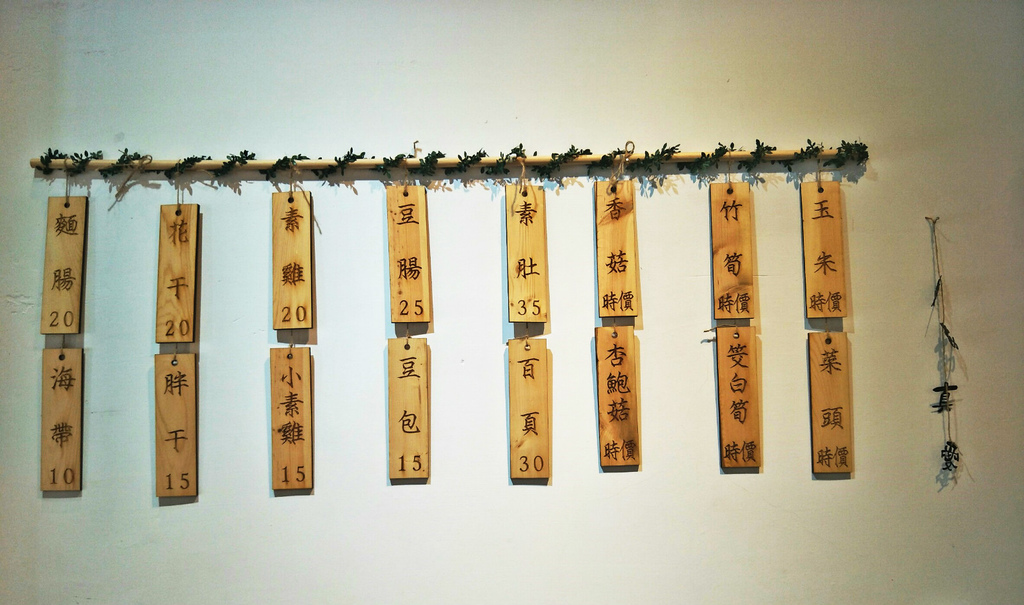 麵腸20
海帶10
花干20
胖干15
素雞20
小素雞15
豆腸25
豆包15
素肚35
百頁30
香菇時價
杏鮑菇時價
竹筍時價
筊白筍時價
玉朱時價
菜頭時價
真愛